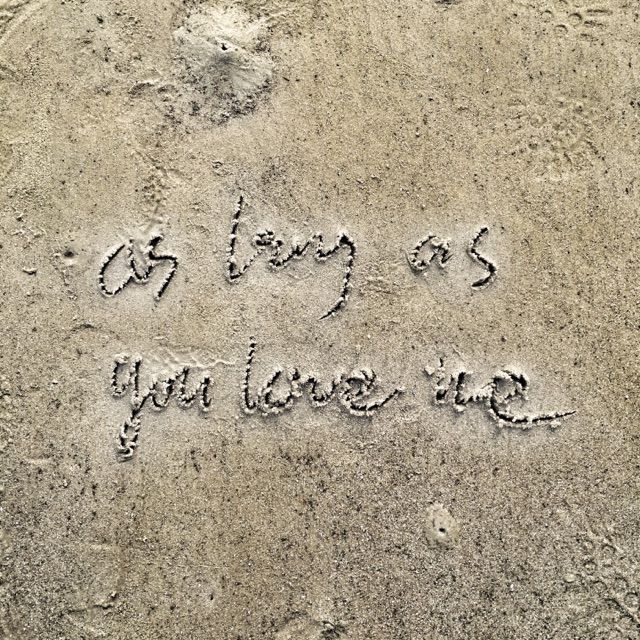 as long as
you love me